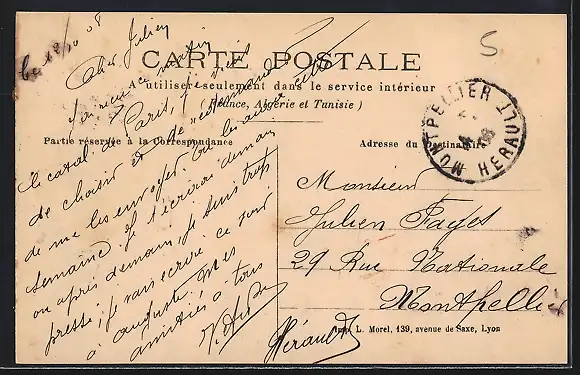 le 12/10 08
Cher Julien
CARTE POSTALE
A utiliser seulement dans le service intérieur
(France, Algérie et Tunisie)
Partie réservée à la Correspondance
Adresse du Destinataire
ce matin
le catal. de Paris, je viens
de choisir et de
de me les envoyer
semaine. Je t'écrirai demain
ou après demain, je suis trop
pressé, je vais écrire ce soir
à Auguste. Mes
amitiés à tous
MONTPELLIER HERAULT
5
Monsieur
Julien Fages
29 Rue Nationale
Montpellier
Hérault
Imp. L. Morel, 139, avenue de Saxe, Lyon